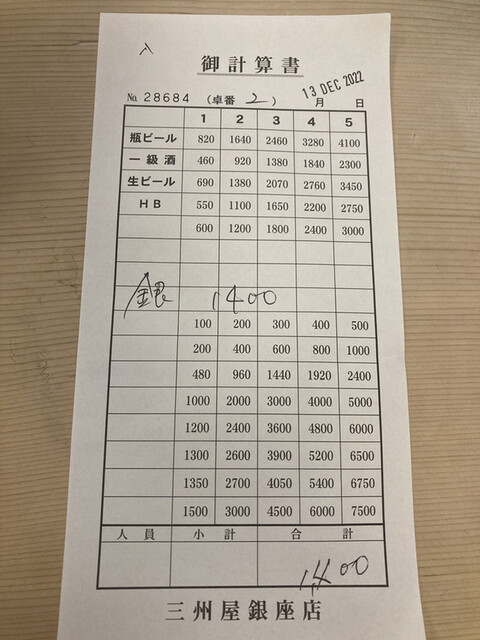 御計算書
13 DEC 2022
№ 28684 (卓番 2) 月 日
1 2 3 4 5
瓶ビール 820 1640 2460 3280 4100
一級酒 460 920 1380 1840 2300
生ビール 690 1380 2070 2760 3450
HB 550 1100 1650 2200 2750
600 1200 1800 2400 3000
銀 1400
100 200 300 400 500
200 400 600 800 1000
480 960 1440 1920 2400
1000 2000 3000 4000 5000
1200 2400 3600 4800 6000
1300 2600 3900 5200 6500
1350 2700 4050 5400 6750
1500 3000 4500 6000 7500
人員 小計 合計
1,400
三州屋銀座店